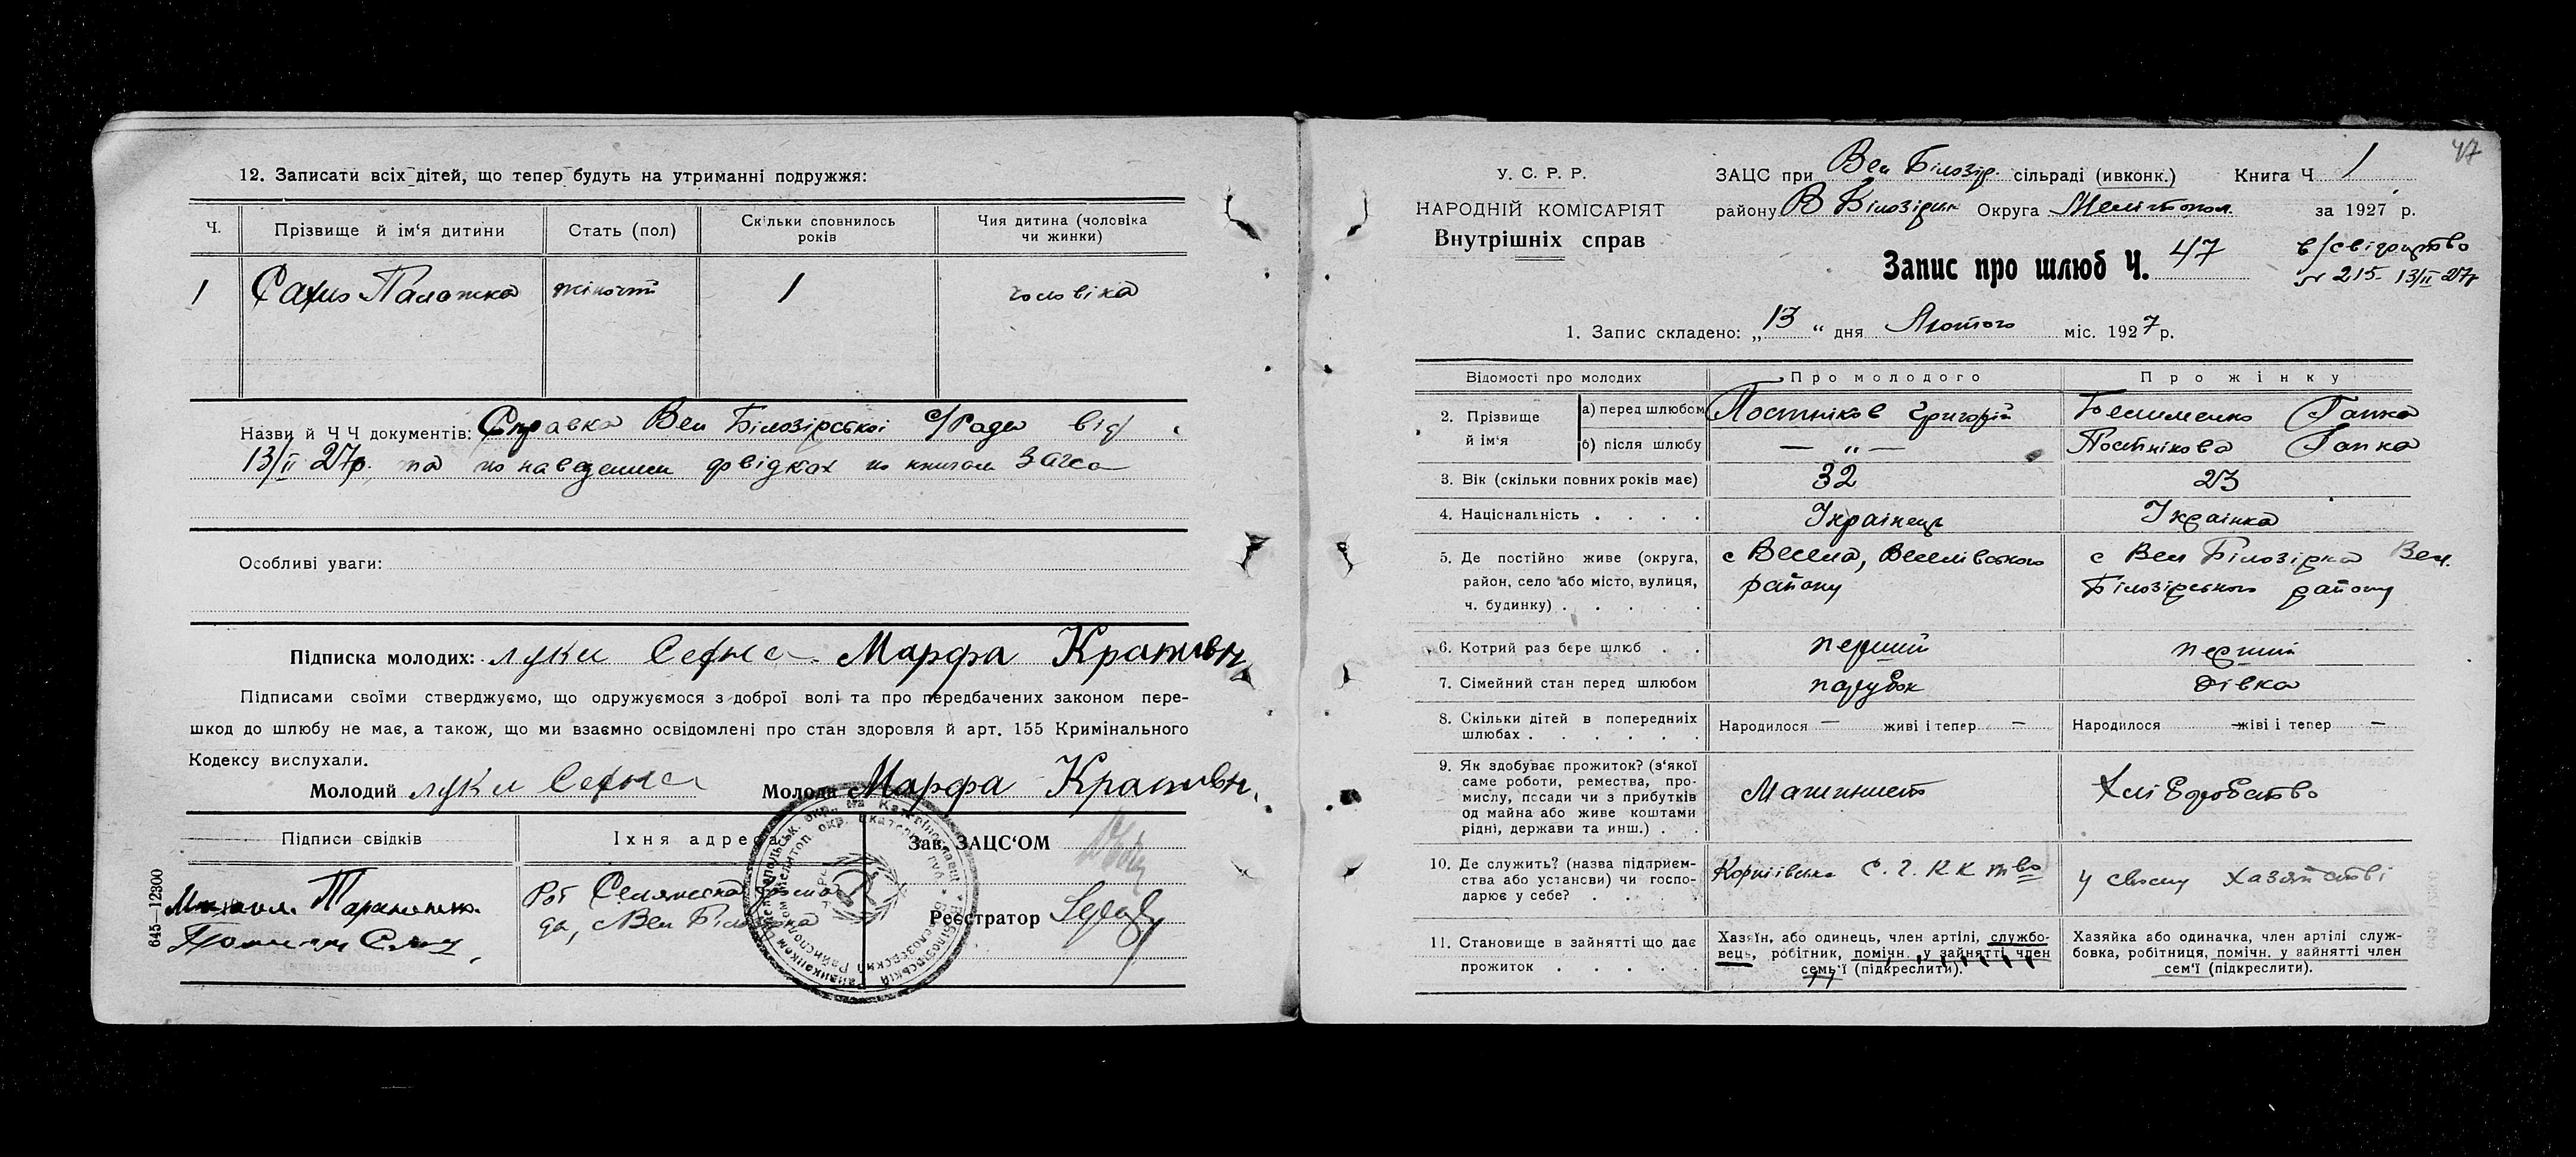 12. Записати всіх дітей, що тепер будуть на утриманні подружжя:
Ч. Прізвище й ім‘я дитини Стать (пол) Скільки сповнилось років Чия дитина (чоловіка чи жинки)
1 Палажка жіночий 1 чоловіка
Назви й Ч Ч документів: Справка Вел Білозірської с/Ради від
13/II 27р. та по наведеним по книгам Загса
Особливі уваги:
Підписка молодих: луки Марфа
Підписами своїми стверджуємо, що одружуємося з доброї волі та про передбачених законом пере-
шкод до шлюбу не має, а також, що ми взаємно освідомлені про стан здоровля й арт. 155 Кримінального
Кодексу вислухали.
Молодий луки Молода Марфа
Підписи свідків Їхня адреса Зав. ЗАЦС‘ОМ
с Вел Білозірка Реєстратор
645—12300
47
У. С. Р. Р.
НАРОДНІЙ КОМІСАРІЯТ
Внутрішніх справ
ЗАЦС при Вел Білозір. сільраді (ивконк.) Книга Ч 1
району В Білозірки Округа Мелітопол. за 1927 р.
Запис про шлюб Ч. 47
в/свідоцтво
№ 215 13/II 27р
1. Запис складено: „13“ дня Лютого міс. 1927р.
Відомості про молодих Про молодого Про жінку
2. Прізвище й ім‘я а) перед шлюбом Постніков Григорій Гапка
б) після шлюбу — „ — Постнікова Гапка
3. Вік (скільки повних років має) 32 23
4. Національність Українець Українка
5. Де постійно живе (округа, с Весела, Веселівського с Вел Білозірка Вел.
район, село або місто, вулиця, району Білозірського району
ч. будинку)
6. Котрий раз бере шлюб перший перший
7. Сімейний стан перед шлюбом парубок дівка
8. Скільки дітей в попередніх шлюбах Народилося — живі і тепер — Народилося — живі і тепер —
9. Як здобуває прожиток? (з‘якої Машинист Хліборобство
саме роботи, ремества, про-
мислу, посади чи з прибутків
од майна або живе коштами
рідні, держави та инш.)
10. Де служить? (назва підприєм- С. Г. К К тво у своєму хазяйстві
ства або установи) чи госпо-
дарює у себе?
11. Становище в зайнятті що дає
прожиток
Хазяїн, або одинець, член артілі, службо-
вець, робітник, помічн. у зайнятті член
семь‘ї (підкреслити).
Хазяйка або одиначка, член артілі служ-
бовка, робітниця, помічн. у зайнятті член
сем‘ї (підкреслити).